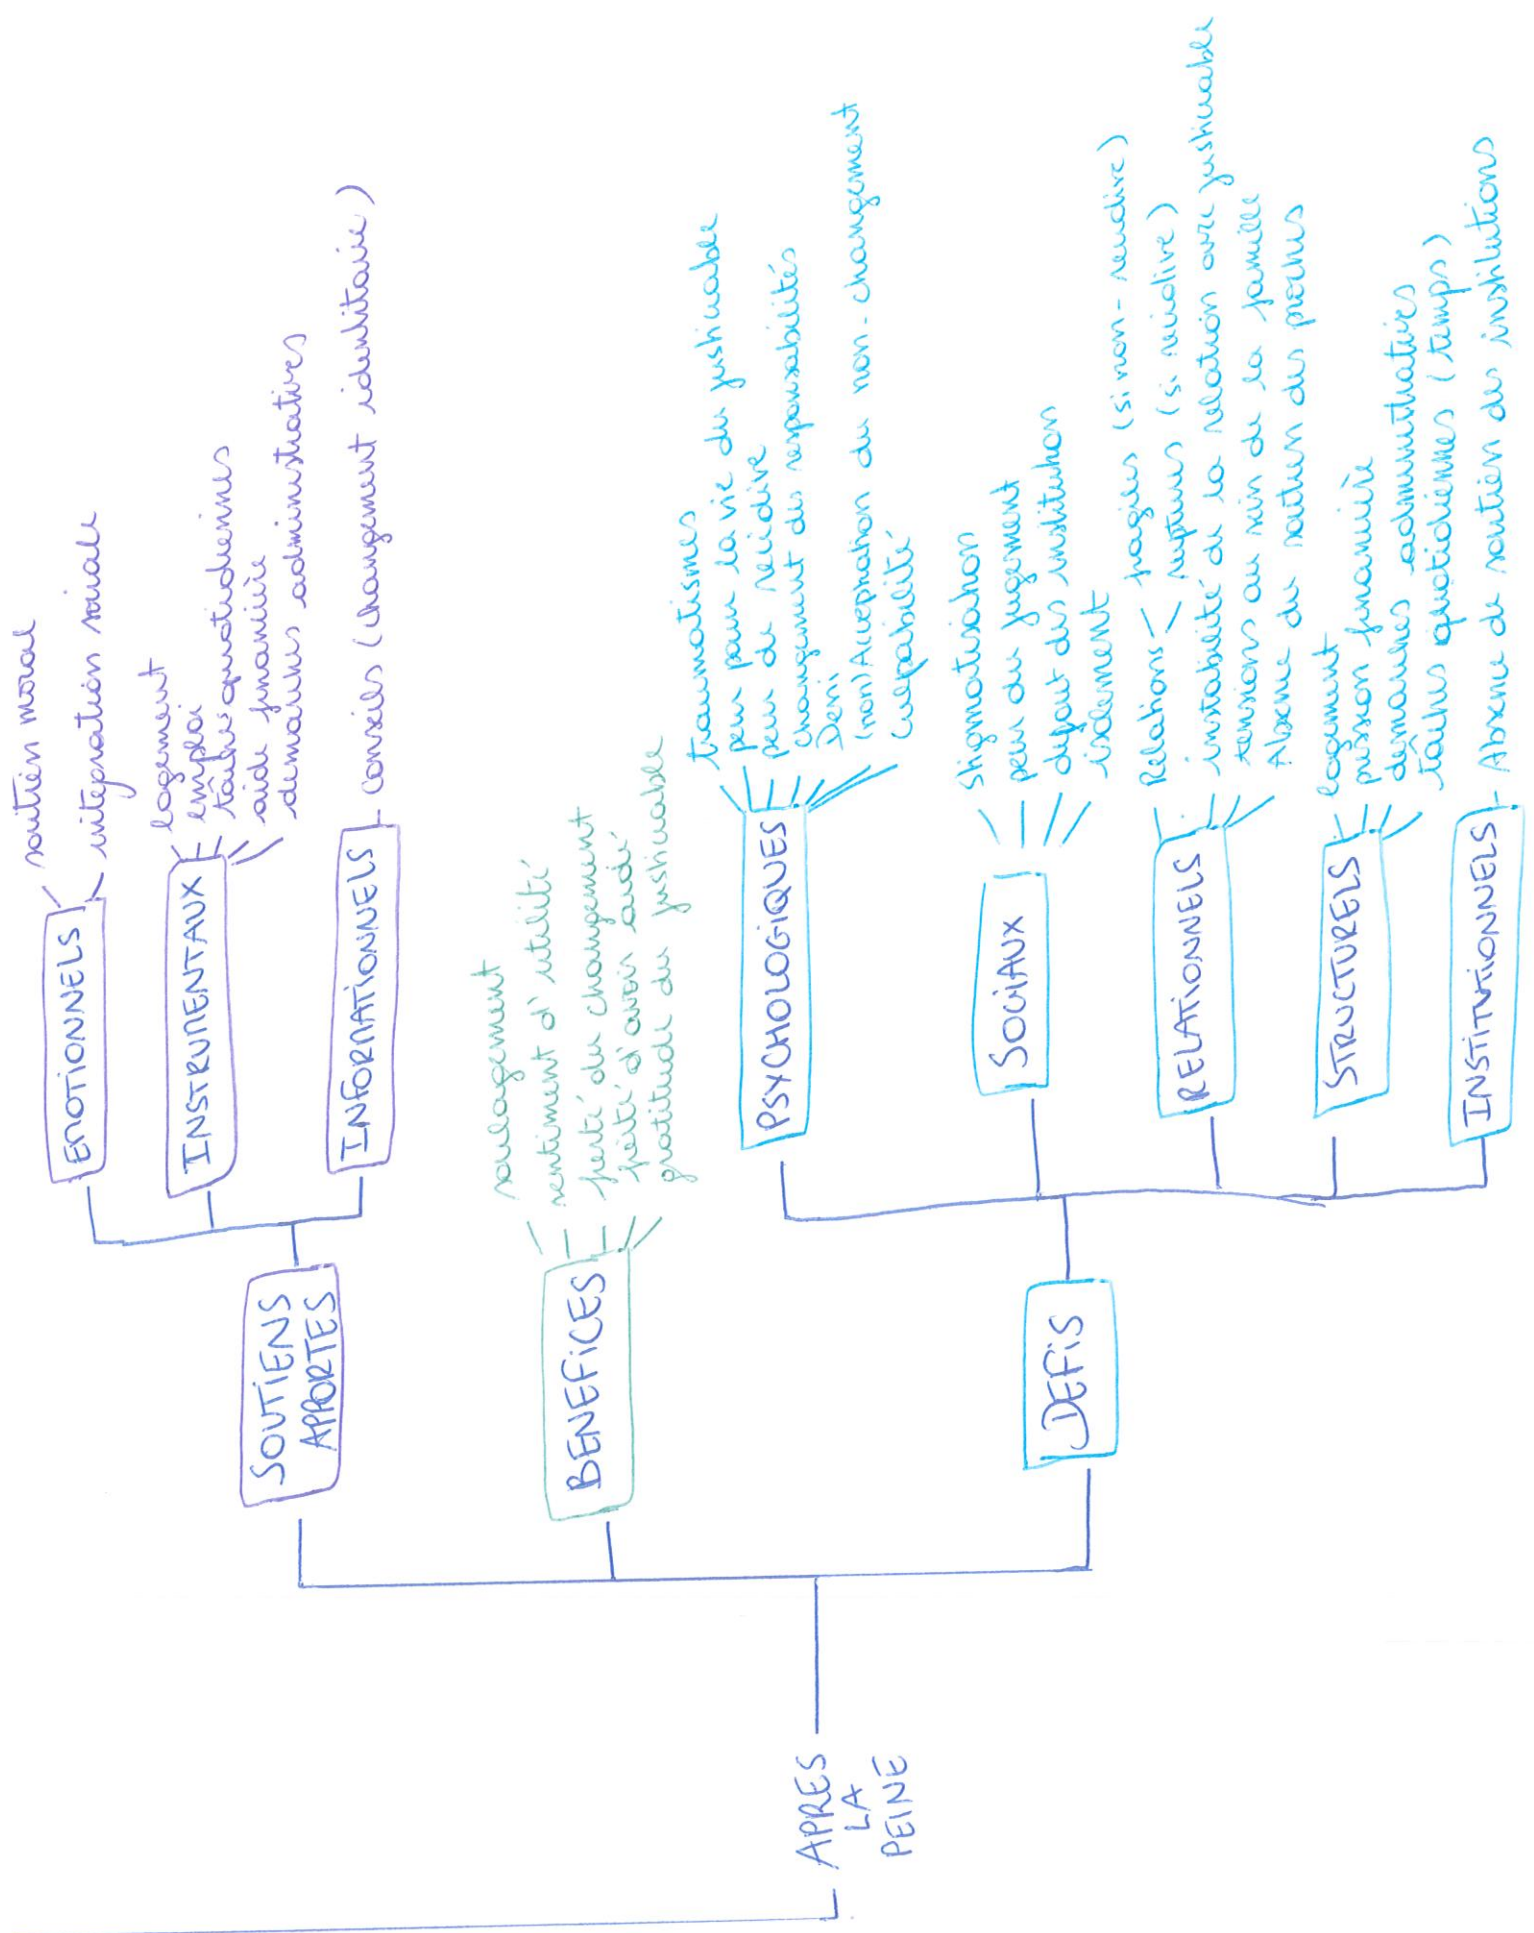 APRES
LA
PEINE
SOUTIENS
APPORTES
EMOTIONNELS
soutien moral
intégration sociale
INSTRUMENTAUX
logement
emploi
tâches quotidiennes
aide financière
démarches administratives
INFORMATIONNELS
conseils (changement identitaire)
BENEFICES
soulagement
sentiment d'utilité
fierté du changement
fierté d'avoir aidé
gratitude du justiciable
DEFIS
PSYCHOLOGIQUES
traumatismes
peur pour la vie du justiciable
peur de récidive
changement des responsabilités
Deni
(non) Acceptation du non-changement
culpabilité
SOCIAUX
stigmatisation
peur du jugement
défaut des institution
isolement
RELATIONNELS
Relations < fragiles (si non-récidive)
ruptures (si récidive)
instabilité de la relation avec justiciable
tensions au sein de la famille
Absence de soutien des proches
STRUCTURELS
logement
pression financière
démarches administratives
tâches quotidiennes (temps)
INSTITUTIONNELS
Absence de soutien des institutions